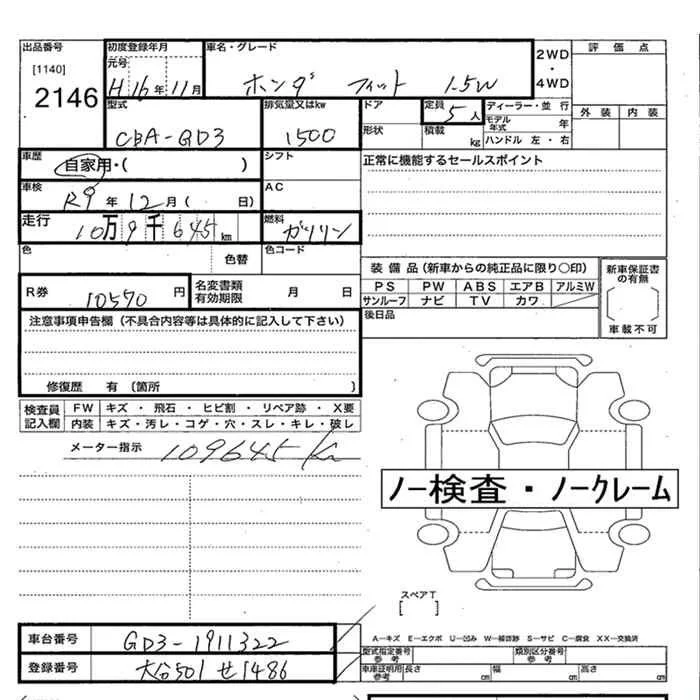 出品番号 初度登録年月 車名・グレード 2WD ・ 4WD 評価点
[1140] 元号
2146 H16年11月 ホンダ フィット 1.5W
型式 排気量又はkw ドア 定員 5人 ディーラー・並行 外装 内装
CBA-GD3 1500 形状 積載 kg モデル年式 年
ハンドル 左・右
車歴 自家用・( ) シフト 正常に機能するセールスポイント
車検 R9年12月( 日) AC
走行 10万9千645km 燃料 ガソリン
色 色替 色コード
装備品(新車からの純正品に限り○印) 新車保証書の有無
R券 10570円 名変書類有効期限 月 日 PS PW ABS エアB アルミW
サンルーフ ナビ TV カワ [ ]
注意事項申告欄(不具合内容等は具体的に記入して下さい) 後日品 車載不可
修復歴 有(箇所 )
検査員記入欄 FW キズ・飛石・ヒビ割・リペア跡・X要
内装 キズ・汚レ・コゲ・穴・スレ・キレ・破レ
メーター指示 109645km
ノー検査・ノークレーム
スペアT
[ ]
車台番号 GD3-1911322 A―キズ E―エクボ U―凹み W―補修跡 S―サビ C―腐食 XX―交換済
型式指定番号 参考 類別区分番号 参考
登録番号 大谷501せ1486 車庫証明用 参考 長さ cm 幅 cm 高さ cm